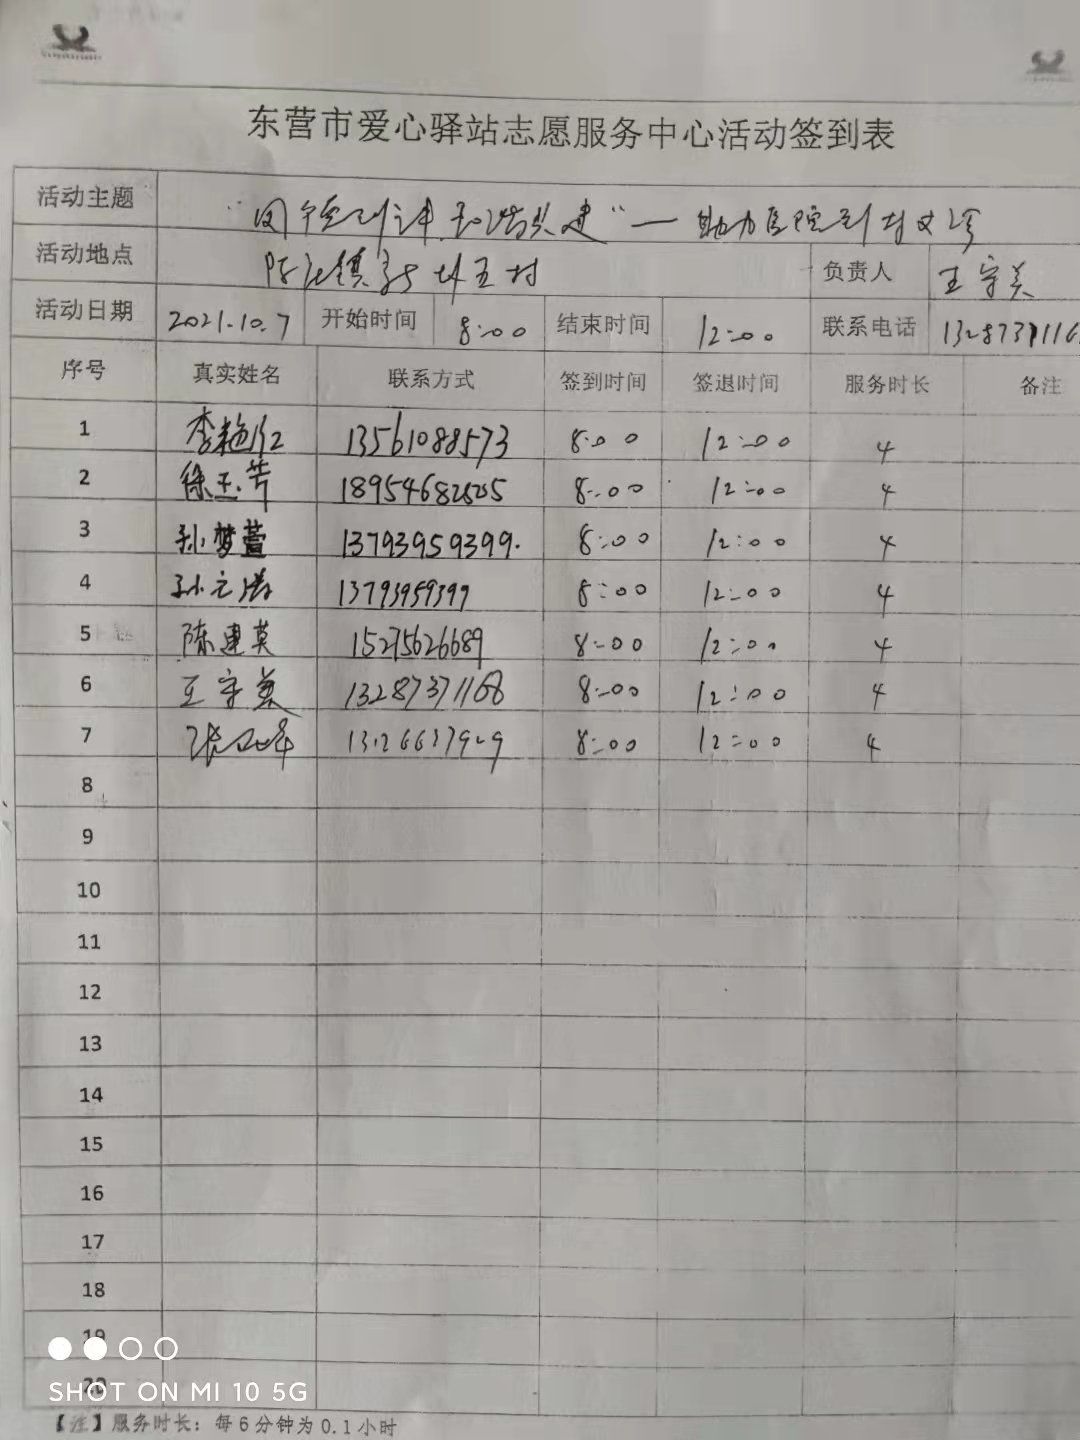 东营市爱心驿站志愿服务中心活动签到表
活动主题 助力医院到村义诊
活动地点 负责人 王守美
活动日期 2021.10.7 开始时间 8:00 结束时间 12:00 联系电话 1328737116
序号 真实姓名 联系方式 签到时间 签退时间 服务时长 备注
1 李艳红 13561088573 8:00 12:00 4
2 徐玉芳 18954682505 8:00 12:00 4
3 孙梦萱 13793959399. 8:00 12:00 4
4 孙元浩 13793959399 8:00 12:00 4
5 陈建英 15275626689 8:00 12:00 4
6 王守美 13287371168 8:00 12:00 4
7 8:00 12:00 4
8
9
10
11
12
13
14
15
16
17
18
19
20
SHOT ON MI 10 5G
【注】服务时长：每6分钟为0.1小时